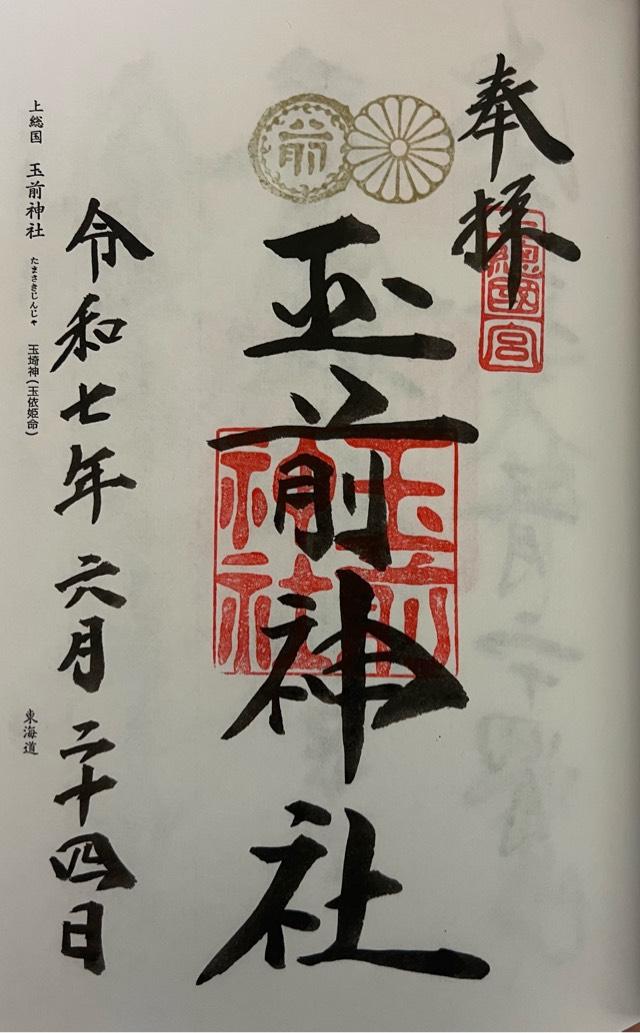 奉拝
上總國一宮
前
玉前神社
玉前神社
令和七年六月二十四日
上総国 玉前神社 たまさきじんじゃ 玉埼神(玉依姫命)
東海道